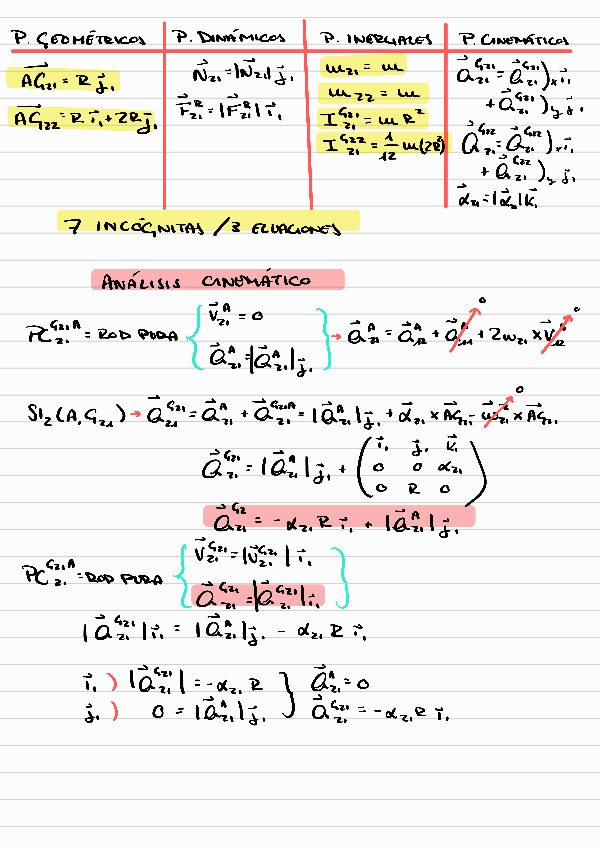 P. GEOMÉTRICOS P. DINÁMICOS P. INERCIALES P. CINEMÁTICOS
AG₂₁ = R j₁
AG₂₂ = R i₁ + 2R j₁
N₂₁ = |N₂₁| j₁
F₂₁ᴿ = |F₂₁ᴿ| i₁
m₂₁ = m
m₂₂ = m
I₂₁^G₂₁ = m R²
I₂₁^G₂₂ = 1/12 m(2R)²
a₂₁^G₂₁ = a₂₁^G₂₁)ₓ i₁
+ a₂₁^G₂₁)y j₁
a₂₁^G₂₂ = a₂₁^G₂₂)ₓ i₁
+ a₂₁^G₂₂)y j₁
α₂₁ = |α₂₁| k₁
7 INCÓGNITAS / 3 ECUACIONES
ANÁLISIS CINEMÁTICO
PC₂₁^G₂₁A = ROD PURA { V₂₁^A = 0
a₂₁^A = |a₂₁^A| j₁ } → a₂₁^A = + + 2ω₂₁ × 0
SI₂(A, G₂₁) → a₂₁^G₂₁ = a₂₁^A + a₂₁^G₂₁A = |a₂₁^A| j₁ + α₂₁ × AG₂₁ - ω₂₁² × AG₂₁ 0
a₂₁^G₂₁ = |a₂₁^A| j₁ + ( i₁ j₁ k₁
0 0 α₂₁
0 R 0 )
a₂₁^G₂ = -α₂₁ R i₁ + |a₂₁^A| j₁
PC₂₁^G₂₁A = ROD PURA { V₂₁^G₂₁ = |V₂₁^G₂₁| i₁
a₂₁^G₂₁ = |a₂₁^G₂₁| i₁ }
|a₂₁^G₂₁| i₁ = |a₂₁^A| j₁ - α₂₁ R i₁
i₁) |a₂₁^G₂₁| = -α₂₁ R } a₂₁^A = 0
j₁) 0 = |a₂₁^A| j₁ } a₂₁^G₂₁ = -α₂₁ R i₁